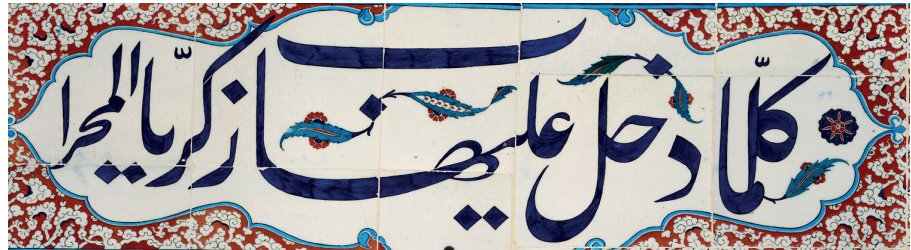 كلّما دخل عليها زكريّا المحراب